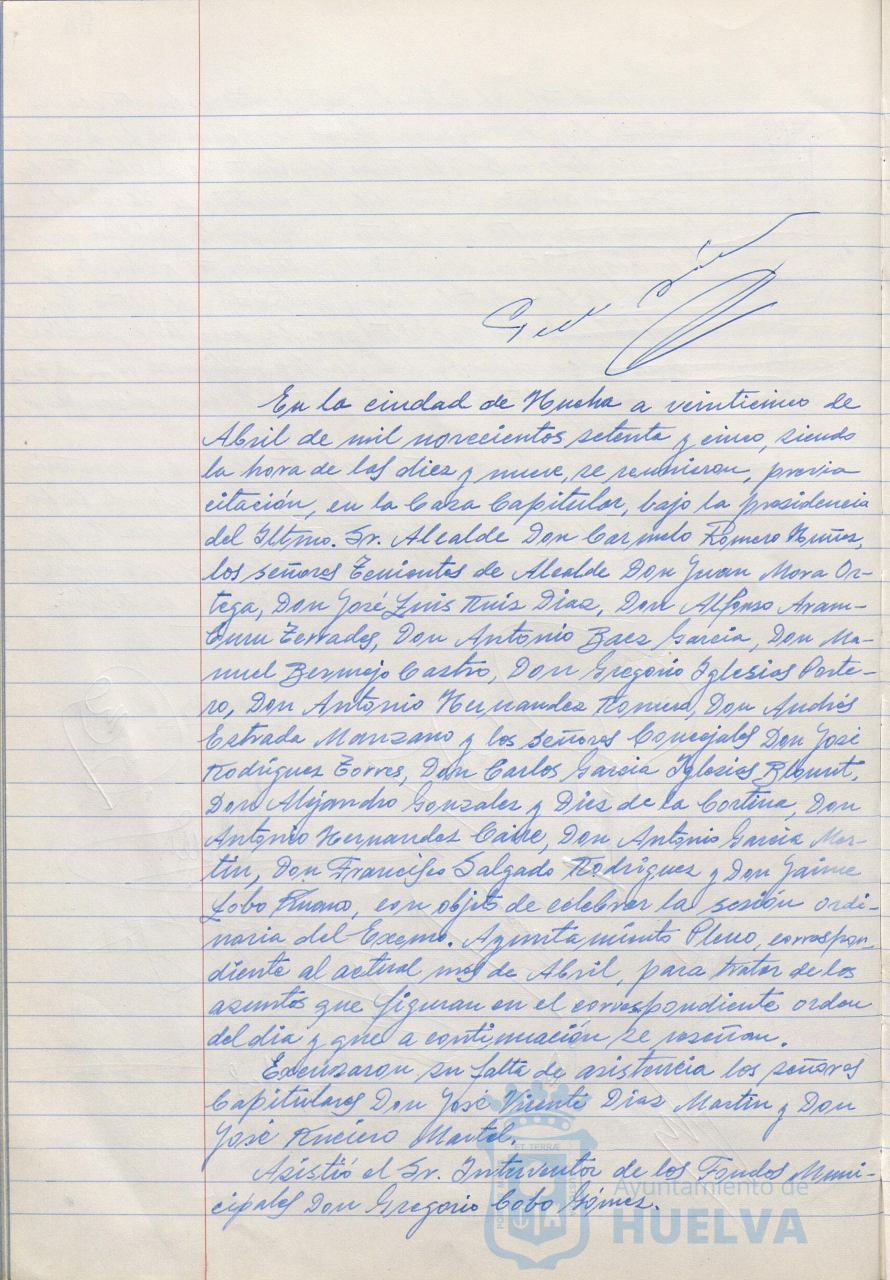 En la ciudad de Huelva a veinticinco de
Abril de mil novecientos setenta y cinco, siendo
la hora de las diez y nueve, se reunieron, previa
citación, en la Casa Capitular, bajo la presidencia
del Iltmo. Sr. Alcalde Don Carmelo Romero Núñez,
los señores Tenientes de Alcalde Don Juan Mora Or-
tega, Don José Luis Ruiz Diaz, Don Alfonso Aram-
buru Terrades, Don Antonio Baez Garcia, Don Ma-
nuel Bermejo Castro, Don Gregorio Iglesias Porte-
ro, Don Antonio Hernandez Romera, Don Andrés
Estrada Manzano y los señores Concejales Don José
Rodríguez Torres, Don Carlos Garcia Iglesias Blount,
Don Alejandro Gonzalez y Diez de la Cortina, Don
Antonio Hernandez Caire, Don Antonio Garcia Mar-
tín, Don Francisco Salgado Rodríguez y Don Jaime
Lobo Ruano, con objeto de celebrar la sesión ordi-
naria del Excmo. Ayuntamiento Pleno, correspon-
diente al actual mes de Abril, para tratar de los
asuntos que figuran en el correspondiente orden
del dia y que a continuación se reseñan.
Excusaron su falta de asistencia los señores
Capitulares Don José Vicente Diaz Martín y Don
José Martel.
Asistió el Sr. Interventor de los Fondos Muni-
cipales Don Gregorio Cobo Gómez.
Ayuntamiento de
HUELVA